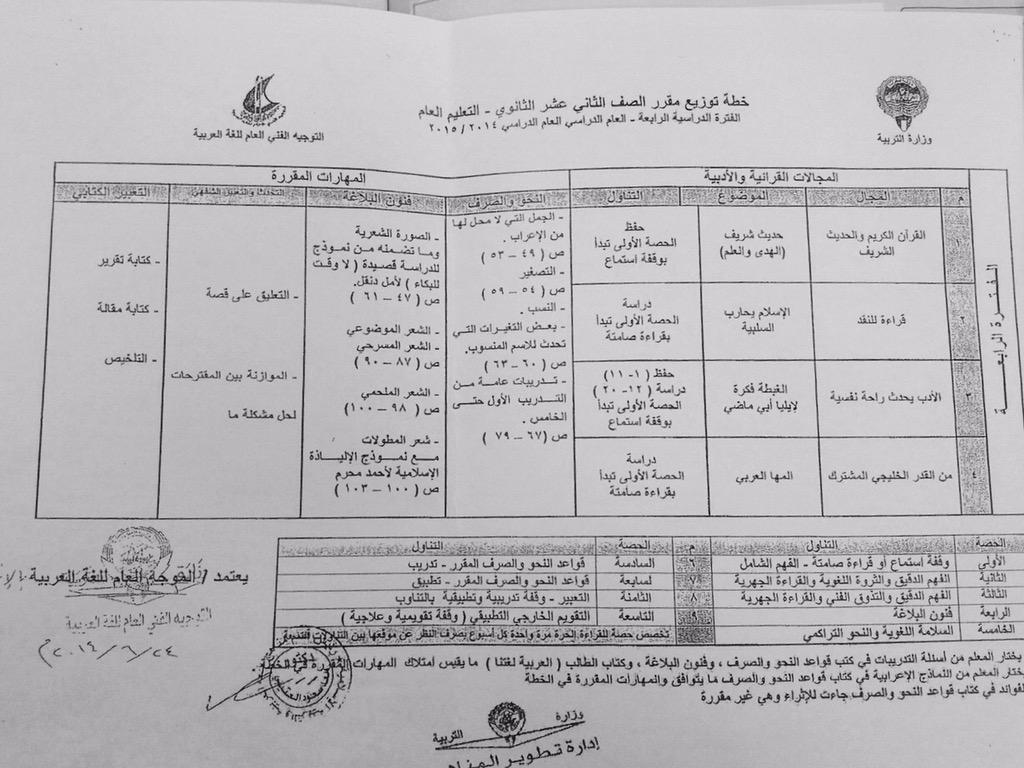 خطة توزيع مقرر الصف الثاني عشر الثانوي - التعليم العام
الفترة الدراسية الرابعة - العام الدراسي العام الدراسي ٢٠١٤ / ٢٠١٥
وزارة التربية
التوجيه الفني العام للغة العربية
الفترة الرابعة
المجالات القرآنية والأدبية
المهارات المقررة
م
المجال
الموضوع
التناول
النحو والصرف
فنون البلاغة
التحدث والتعبير الشفهي
التعبير الكتابي
١
القرآن الكريم والحديث
الشريف
حديث شريف
(الهدى والعلم)
حفظ
الحصة الأولى تبدأ
بوقفة استماع
٢
قراءة للنقد
الإسلام يحارب
السلبية
دراسة
الحصة الأولى تبدأ
بقراءة صامتة
٣
الأدب يحدث راحة نفسية
الغبطة فكرة
لإيليا أبي ماضي
حفظ (١- ١١)
دراسة (١٢- ٢٠)
الحصة الأولى تبدأ
بوقفة استماع
٤
من القدر الخليجي المشترك
المها العربي
دراسة
الحصة الأولى تبدأ
بقراءة صامتة
- الجمل التي لا محل لها
من الإعراب .
ص (٤٩ – ٥٣)
- التصغير
ص (٥٤ – ٥٩)
- النسب .
- بعض التغيرات التي
تحدث للاسم المنسوب.
ص (٦٠ – ٦٣)
- تدريبات عامة من
التدريب الأول حتى
الخامس .
ص (٦٧ – ٧٩)
- الصورة الشعرية
وما تضمنه من نموذج
للدراسة قصيدة ( لا وقت
للبكاء ) لأمل دنقل.
ص ( ٤٧ – ٦١ )
- الشعر الموضوعي
- الشعر المسرحي
ص ( ٨٧ – ٩٠ )
- الشعر الملحمي
ص ( ٩٨ – ١٠٠)
- شعر المطولات
مع نموذج الإلياذة
الإسلامية لأحمد محرم
ص ( ١٠٠ – ١٠٣ )
- التعليق على قصة
- الموازنة بين المقترحات
لحل مشكلة ما
- كتابة تقرير
- كتابة مقالة
- التلخيص
الحصة
التناول
م
الحصة
التناول
الأولى
وقفة استماع أو قراءة صامتة - الفهم الشامل
٦
السادسة
قواعد النحو والصرف المقرر - تدريب
الثانية
الفهم الدقيق والثروة اللغوية والقراءة الجهرية
٧
السابعة
قواعد النحو والصرف المقرر - تطبيق
الثالثة
الفهم الدقيق والتذوق الفني والقراءة الجهرية
٨
الثامنة
التعبير - وقفة تدريبية وتطبيقية بالتناوب
الرابعة
فنون البلاغة
٩
التاسعة
التقويم الخارجي التطبيقي ( وقفة تقويمية وعلاجية )
الخامسة
السلامة اللغوية والنحو التراكمي
تخصص حصة للقراءة الحرة مرة واحدة كل أسبوع بصرف النظر عن موقعها بين التناولات
يختار المعلم من أسئلة التدريبات في كتب قواعد النحو والصرف ، وفنون البلاغة ، وكتاب الطالب ( العربية لغتنا ) ما يقيس امتلاك المهارات المقررة في الخطة.
يختار المعلم من النماذج الإعرابية في كتاب قواعد النحو والصرف ما يتوافق والمهارات المقررة في الخطة
الفوائد في كتاب قواعد النحو والصرف جاءت للإثراء وهي غير مقررة
يعتمد / الموجه العام للغة العربية
التوجيه الفني العام للغة العربية
٢٠١٤/٦/٢٤
وزارة
التربية
إدارة تطوير